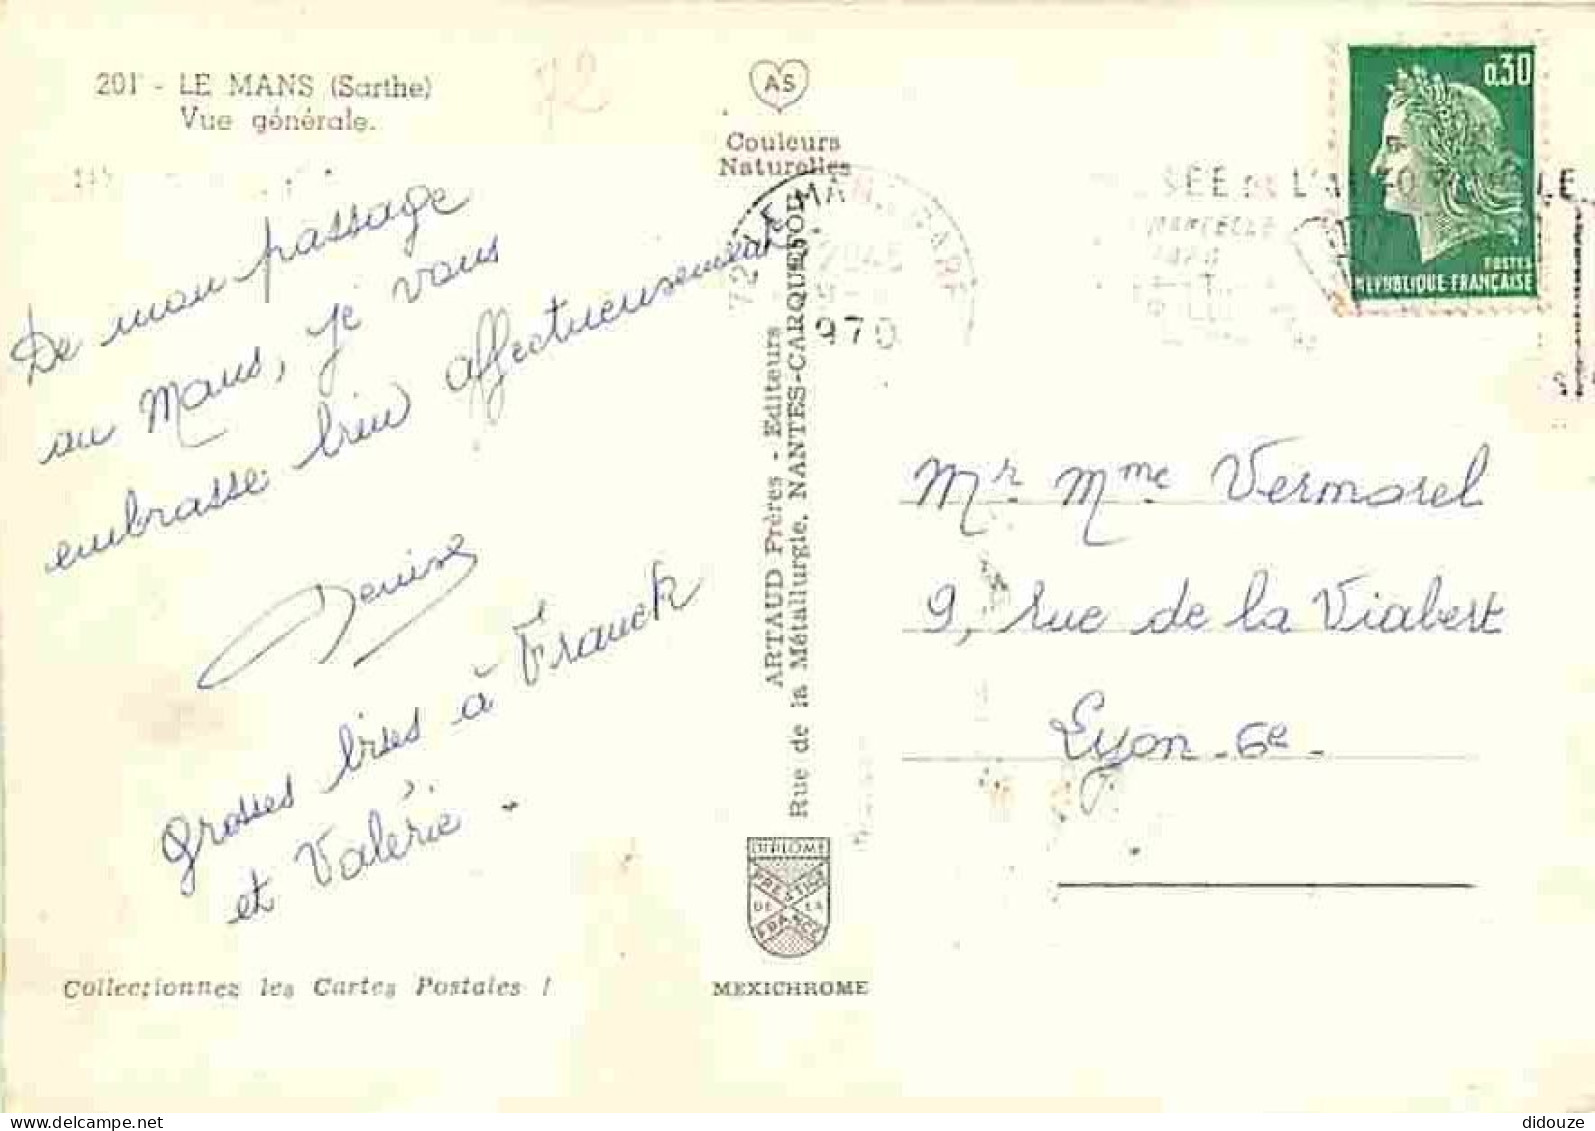 201 - LE MANS (Sarthe)
Vue générale.
72
De mon passage
au Mans, je vous
embrasse bien affectueusement
Denise
grosses bises à Franck
et Valérie
Collectionnez les Cartes Postales !
AS
Couleurs
Naturelles
ARTAUD Frères - Editeurs
Rue de la Métallurgie, NANTES-CARQUEFOU
DIPLOME
PRESTIGE
DE LA
FRANCE
MEXICHROME
72 LE MANS
970
0,30
POSTES
REPUBLIQUE FRANÇAISE
Mr Mme Vermorel
9, rue de la Viabert
Lyon - 6e -
didouze